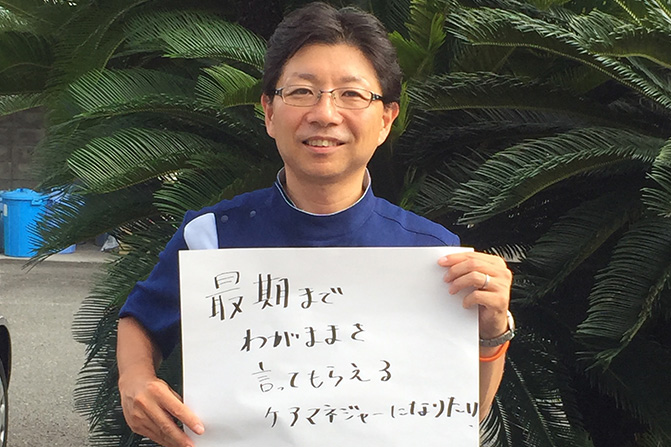 最期まで
わがままを
言ってもらえる
ケアマネジャーになりたい